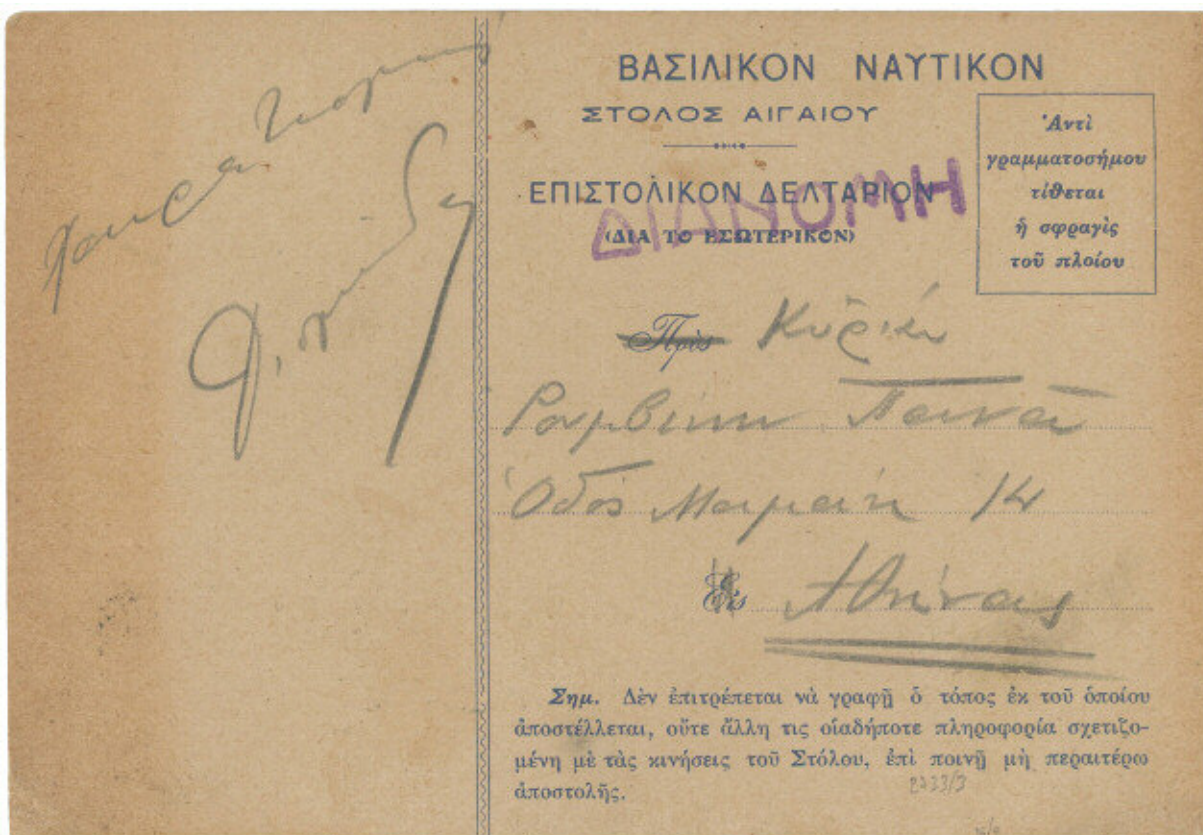 ΒΑΣΙΛΙΚΟΝ ΝΑΥΤΙΚΟΝ
ΣΤΟΛΟΣ ΑΙΓΑΙΟΥ
ΕΠΙΣΤΟΛΙΚΟΝ ΔΕΛΤΑΡΙΟΝ
ΔΙΑΝΟΜΗ
(ΔΙΑ ΤΟ ΕΣΩΤΕΡΙΚΟΝ)
Ἀντὶ
γραμματοσήμου
τίθεται
ἡ σφραγὶς
τοῦ πλοίου
Πρὸς
Ὁδὸς 14
Εἰς Ἀθήνας
Σημ. Δὲν ἐπιτρέπεται νὰ γραφῇ ὁ τόπος ἐκ τοῦ ὁποίου
ἀποστέλλεται, οὔτε ἄλλη τις οἱαδήποτε πληροφορία σχετιζο-
μένη μὲ τὰς κινήσεις τοῦ Στόλου, ἐπὶ ποινῇ μὴ περαιτέρω
ἀποστολῆς.
2733/3